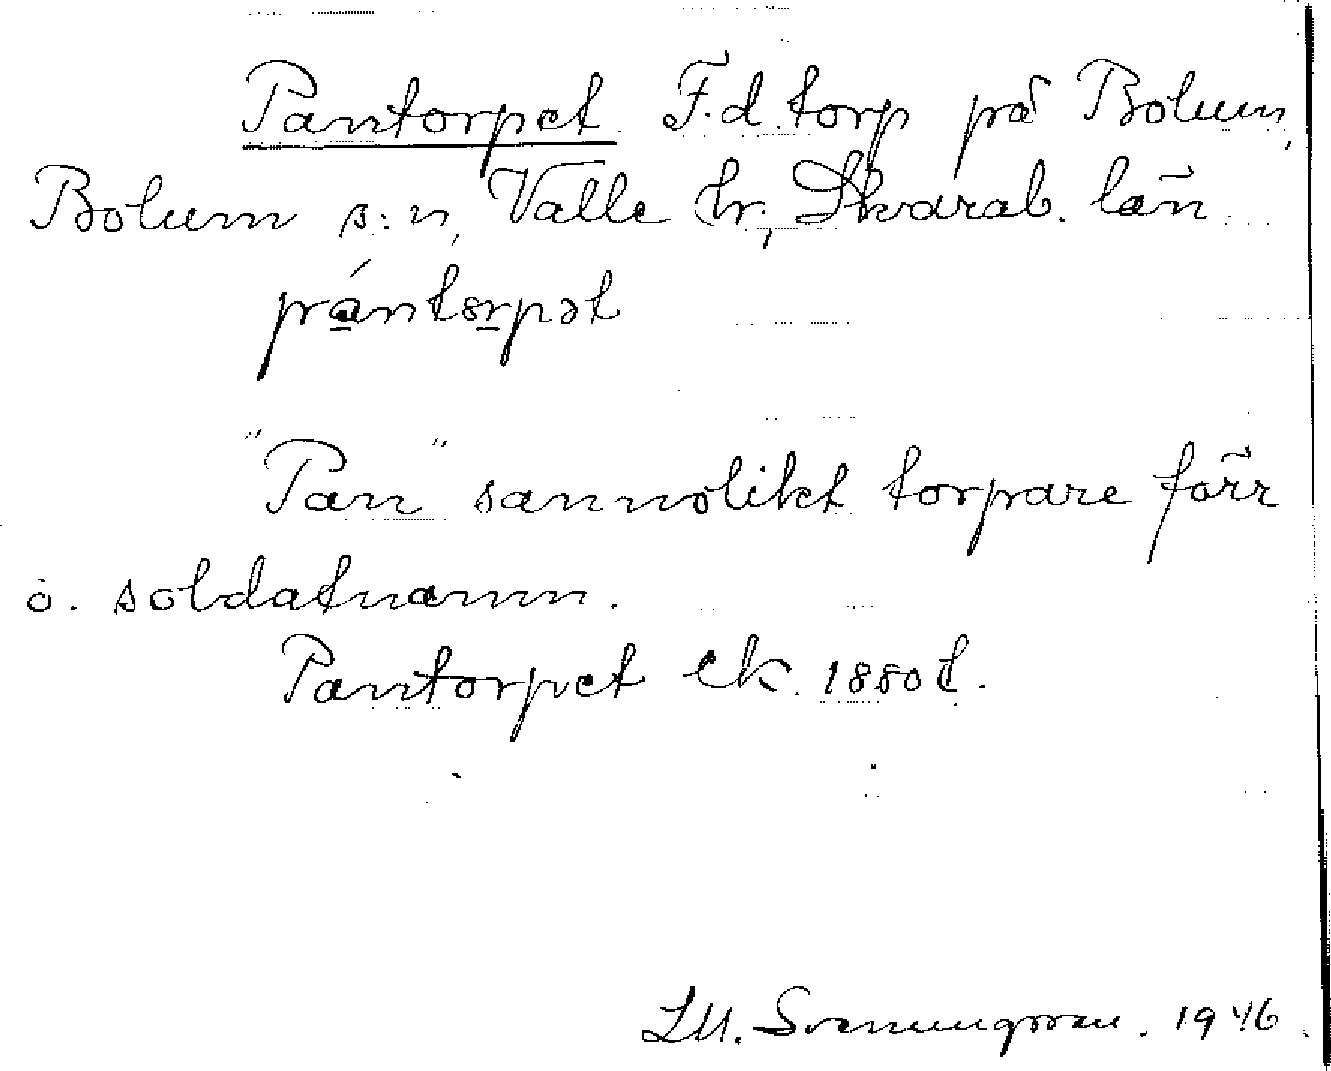 Pantorpet F.d. torp på Bolum,
Bolum s:n, Valle hr, Skarab. län
pántorpət
"Pan" sannolikt torpare förr
o. soldatnamn.
Pantorpet ek. 1880 t.
LM. Svenungsson. 1946